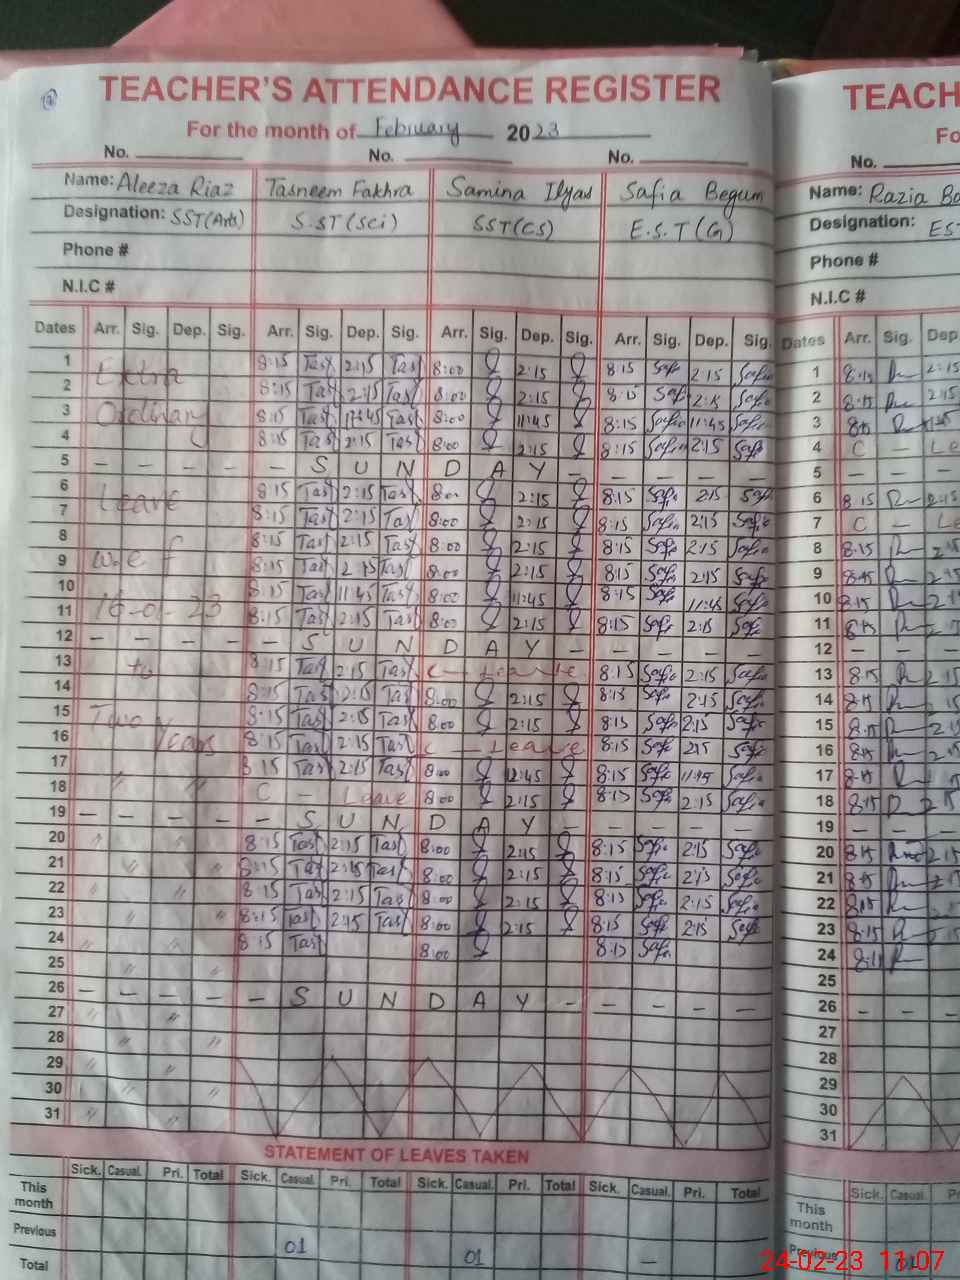 TEACHER'S ATTENDANCE REGISTER
For the month of February 2023
No. No. No.
Name: Aleeza Riaz Tasneem Fakhra Samina Ilyas Safia Begum
Designation: SST(Arts) S.ST(Sci) SST(CS) E.S.T(G)
Phone #
N.I.C #
Dates Arr. Sig. Dep. Sig. Arr. Sig. Dep. Sig. Arr. Sig. Dep. Sig. Arr. Sig. Dep. Sig.
1 Extra 8:15 Tas 2:15 Tas 8:00 2:15 8:15 Safi 2:15 Safia
2 8:15 Tas 2:15 Tas 8:00 2:15 8:15 Saf 2:15 Safia
3 Ordinary 8:15 Tas 11:45 Tas 8:00 11:45 8:15 Safia 11:45 Safia
4 8:15 Tas 2:15 Tas 8:00 2:15 8:15 Safia 2:15 Safi
5 – – – – – S U N D A Y – – – – –
6 Leave 8:15 Tas 2:15 Tas 8:00 2:15 8:15 Safi 2:15 Safi
7 8:15 Tas 2:15 Tas 8:00 2:15 8:15 Safia 2:15 Safia
8 8:15 Tas 2:15 Tas 8:00 2:15 8:15 Safi 2:15 Safia
9 w.e.f 8:15 Tas 2:15 Tas 8:00 2:15 8:15 Safi 2:15 Safi
10 8:15 Tas 11:45 Tas 8:00 11:45 8:15 Safi 11:45 Safia
11 16-01-23 8:15 Tas 2:15 Tas 8:00 2:15 8:15 Safi 2:15 Safia
12 – – – – – S U N D A Y – – – – –
13 to 8:15 Tas 2:15 Tas C – Leave 8:15 Safi 2:15 Safia
14 8:15 Tas 2:15 Tas 8:00 2:15 8:15 Safi 2:15 Safia
15 Two 8:15 Tas 2:15 Tas 8:00 2:15 8:15 Safi 2:15 Safi
16 Years 8:15 Tas 2:15 Tas C – Leave 8:15 Safi 2:15 Safi
17 8:15 Tas 2:15 Tas 8:00 12:45 8:15 Safi 11:45 Safia
18 " " C – Leave 8:00 2:15 8:15 Safi 2:15 Safia
19 – – – – – S U N D A Y – – – – –
20 " " 8:15 Tas 2:15 Tas 8:00 2:15 8:15 Safi 2:15 Safi
21 " " 8:15 Tas 2:15 Tas 8:00 2:15 8:15 Safi 2:15 Safi
22 " " 8:15 Tas 2:15 Tas 8:00 2:15 8:15 Safi 2:15 Safia
23 " 8:15 Tas 2:15 Tas 8:00 2:15 8:15 Safi 2:15 Safi
24 " 8:15 Tas 8:00 8:15 Safi
25 " "
26 – – – – – S U N D A Y – – – – –
27 " "
28 " "
29 " "
30 " " "
31 " "
STATEMENT OF LEAVES TAKEN
Sick. Casual. Pri. Total Sick. Casual. Pri. Total Sick. Casual. Pri. Total Sick. Casual. Pri. Total
This month
Previous 01 01 –
Total
TEACH
Fo
No.
Name: Razia
Designation: ES
Phone #
N.I.C #
Dates Arr. Sig. Dep
1 8:15 2:15
2 8:15 2:15
3 8:15
4 C – Le
5 – – –
6 8:15 2:15
7 C – Le
8 8:15 2:15
9 8:15 2:15
10 8:15
11 8:15
12 – – –
13 8:15 2:15
14 8:15 2:15
15 8:15 2:15
16 8:15
17 8:15
18 8:15 2:15
19 – – –
20 8:15 2:15
21 8:15
22 8:15
23 8:15
24
25
26 – – –
27
28
29
30
31
Sick. Casual.
This month
Previous 01
24-02-23 11:07